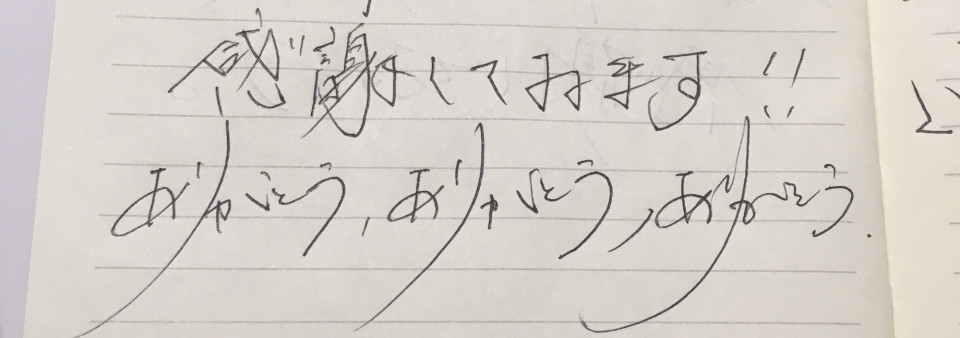 感謝しております!!
ありがとう,ありがとう,ありがとう.